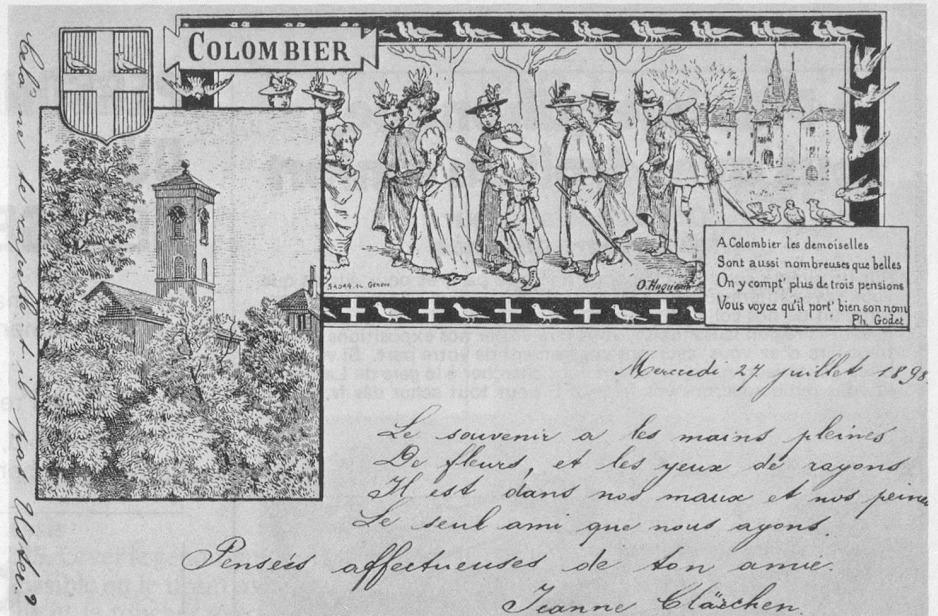 COLOMBIER
SADAG. sc. Genève
A Colombier les demoiselles
Sont aussi nombreuses que belles
On y compt' plus de trois pensions
Vous voyez qu'il port' bien son nom
Ph. Godet
Mercredi 27 juillet 1898.
Le souvenir a les mains pleines
De fleurs, et les yeux de rayons
Il est dans nos maux et nos peines
Le seul ami que nous ayons.
Pensées affectueuses de ton amie.
Jeanne Clärchen.
Cela ne te rapelle t-il pas Uster?